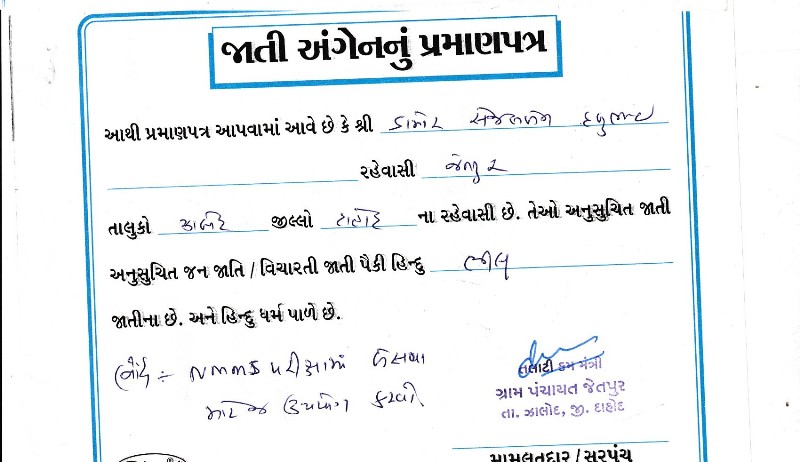 જાતી અંગેનનું પ્રમાણપત્ર
આથી પ્રમાણપત્ર આપવામાં આવે છે કે શ્રી ડામોર
રહેવાસી જેતપુર
તાલુકો ઝાલોદ જીલ્લો દાહોદ ના રહેવાસી છે. તેઓ અનુસુચિત જાતી
અનુસુચિત જન જાતિ / વિચારતી જાતી પૈકી હિન્દુ ભીલ
જાતીના છે. અને હિન્દુ ધર્મ પાળે છે.
નોંધ :- NMMS પરીક્ષામાં બેસવા
માટે જ ઉપયોગ કરવો
તલાટી કમ મંત્રી
ગ્રામ પંચાયત જેતપુર
તા. ઝાલોદ, જી. દાહોદ
મામલતદાર / સરપંચ